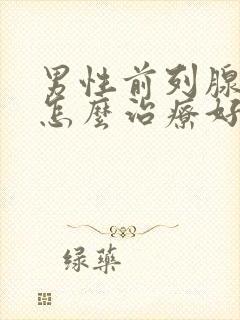 男性前列腺
怎麼治療好
绿藥